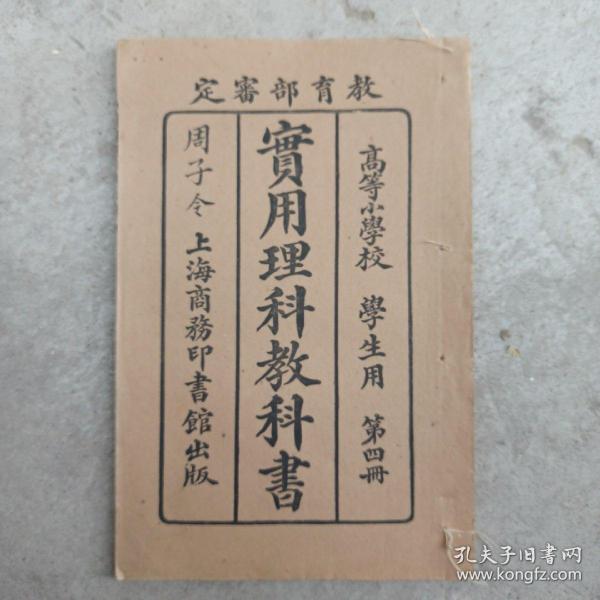 教育部審定
高等小學校 學生用 第四冊
實用理科教科書
周子令 上海商務印書館出版
孔夫子旧书网
www.kongfz.com